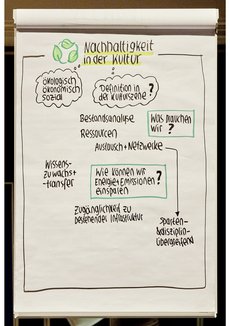 Nachhaltigkeit
in der Kultur
ökologisch
ökonomisch
sozial
Definition in
der Kulturszene?
Bestandsanalyse
Ressourcen
Was brauchen
wir?
Austausch + Netzwerke
Wissens-
zuwachs +
-transfer
Wie können wir
Energie + Emissionen
einsparen
?
Zugänglichkeit zu
bestehender Infrastruktur
Sparten-
& disziplin-
übergreifend